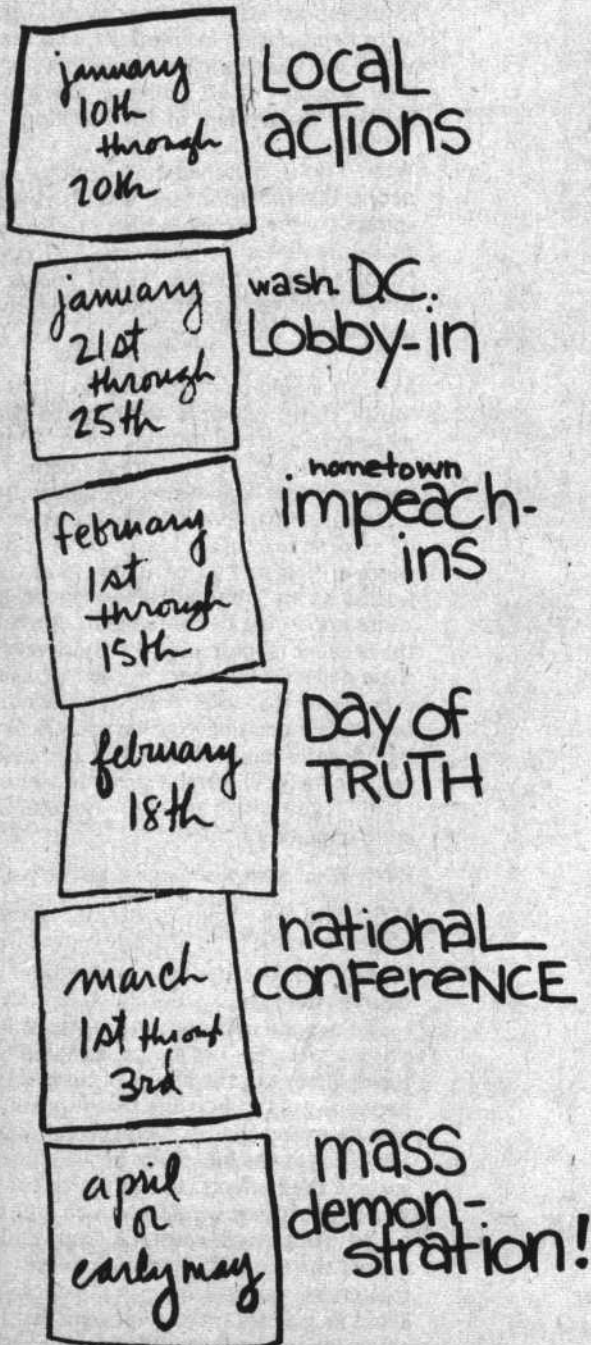 january
10th
through
20th
LOCaL
acTions
january
21st
through
25th
wash. D.C.
Lobby-in
february
1st
through
15th
hometown
impeach-
ins
february
18th
Day of
TRUTH
march
1st through
3rd
national
conFereNCE
april
or
early may
mass
demon-
stration!